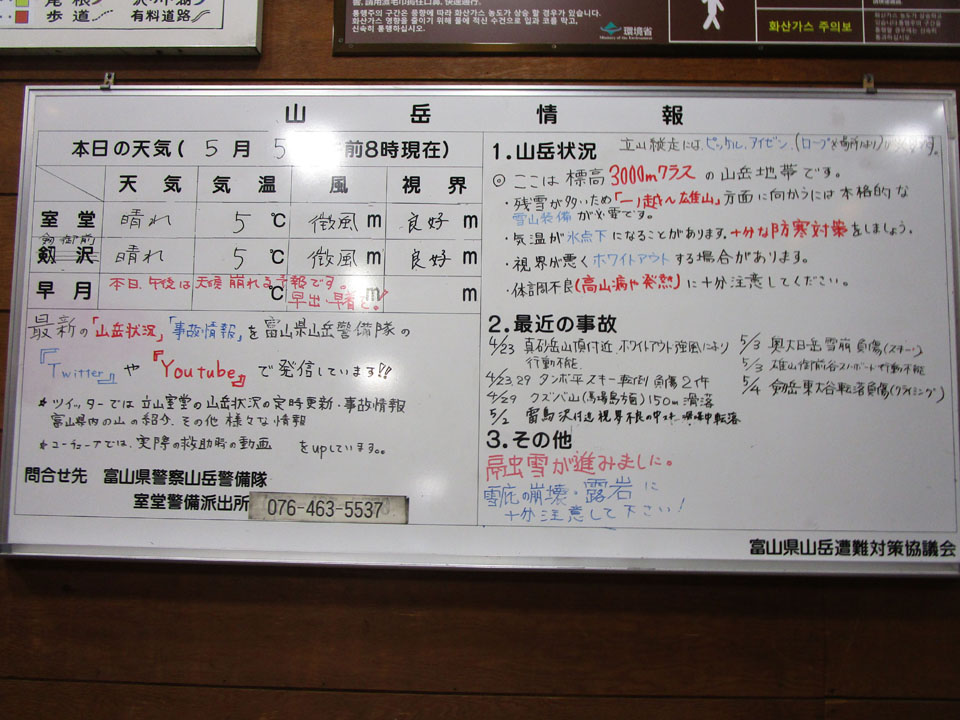 尾根
歩道
有料道路
통행주의 구간은 풍향에 따라 화산가스 농도가 상승 할 경우가 있습니다.
화산가스 영향을 줄이기 위해 물에 적신 수건으로 입과 코를 막고,
신속히 통행하십시오.
環境省
Ministry of the Environment
화산가스 주의보
山岳情報
本日の天気( 5月 5 前8時現在)
天気 気温 風 視界
室堂 晴れ 5℃ 微風m 良好m
剱御前
剱沢 晴れ 5℃ 微風m 良好m
早月 ℃ m m
本日、午後は天候崩れる予報です。
早出・早着を!
最新の「山岳状況」「事故情報」を富山県山岳警備隊の
『Twitter』や『Youtube』で発信しています!!
*ツイッターでは立山室堂の山岳状況の定時更新・事故情報
富山県内の山の紹介、その他様々な情報
*ユーチューブでは、実際の救助時の動画 をupしています。。
問合せ先 富山県警察山岳警備隊
室堂警備派出所 076-463-5537
1.山岳状況
立山縦走には、ピッケル、アイゼン、(ロープ
◎ ここは標高3000mクラスの山岳地帯です。
・残雪が多いため「一ノ越〜雄山」方面に向かうには本格的な
雪山装備が必要です。
・気温が氷点下になることがあります。十分な防寒対策をしましょう。
・視界が悪くホワイトアウトする場合があります。
・体調不良(高山病や発熱)に十分注意してください。
2.最近の事故
4/23 真砂岳山頂付近 ホワイトアウト強風により
行動不能
4/23,29 タンボ平スキー転倒負傷2件
4/29 クズバ山(馬場島方面)150m滑落
5/2 雷鳥沢付近視界不良の中 転落
5/3 奥大日岳 雪崩負傷(スキー)
5/3 雄山御前谷スノーボード行動不能
5/4 剱岳東大谷転落負傷(クライミング)
3.その他
融雪が進みました。
雪庇の崩壊・露岩に
十分注意して下さい!
富山県山岳遭難対策協議会